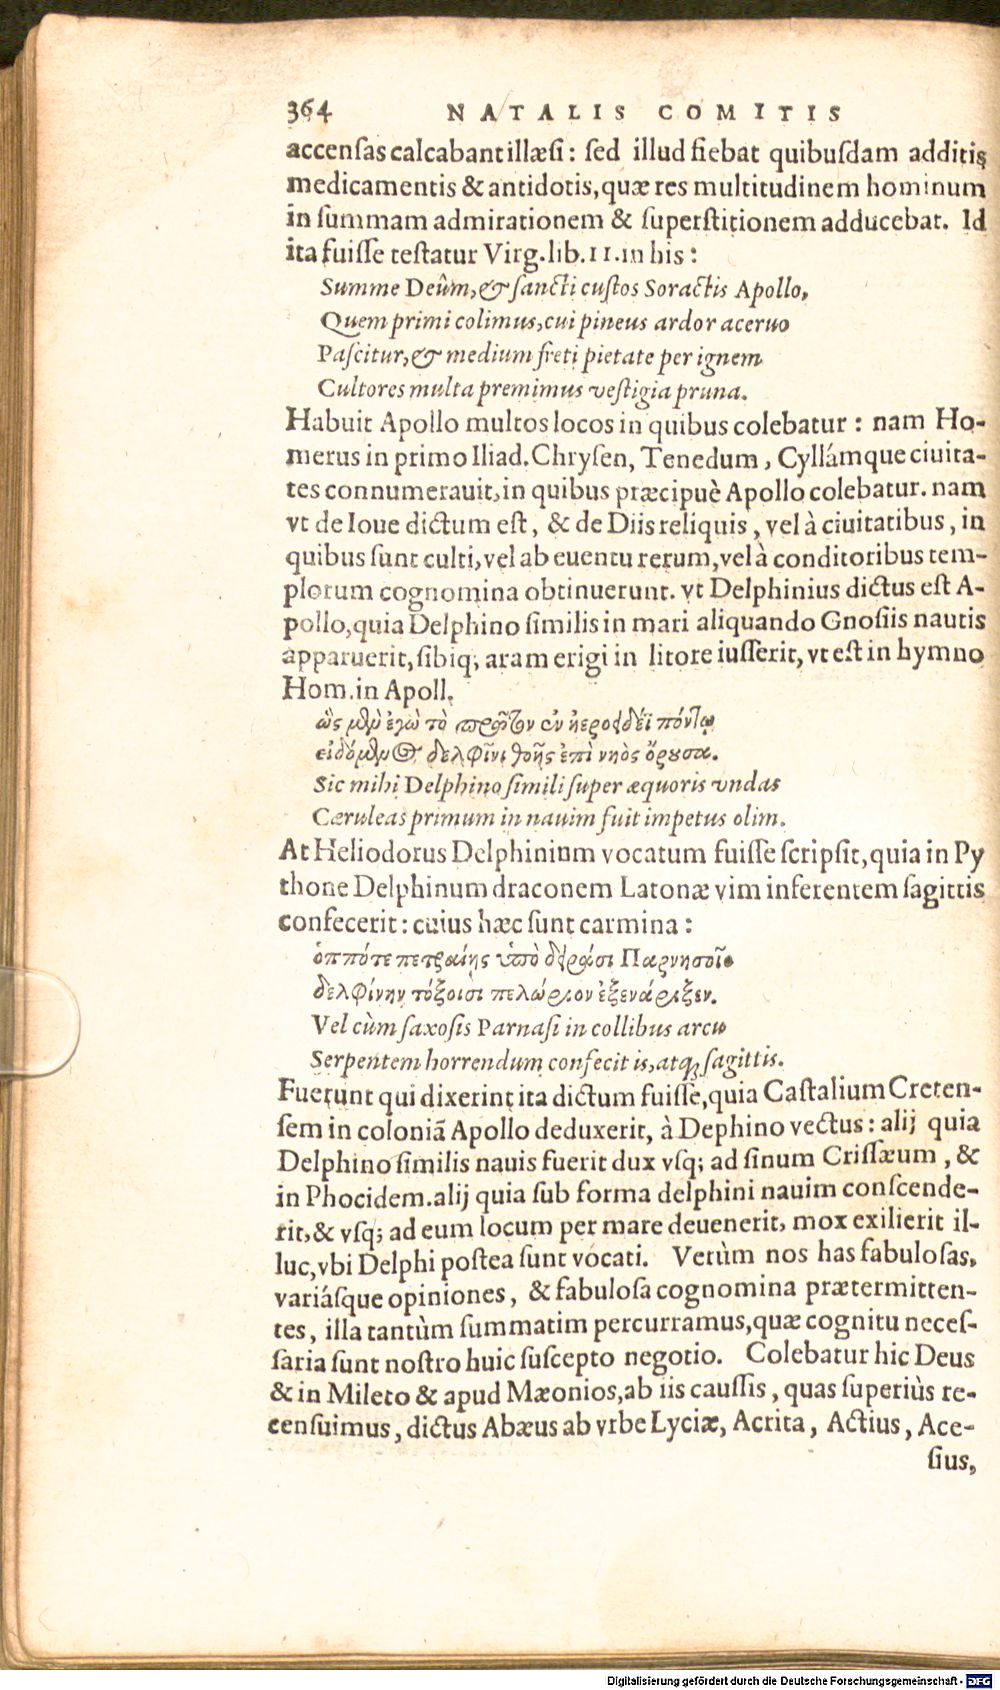 364 NATALIS COMITIS
accensas calcabant illæsi: sed illud fiebat quibusdam additis
medicamentis & antidotis, quæ res multitudinem hominum
in summam admirationem & superstitionem adducebat. Id
ita fuisse testatur Virg. lib. 11. in his:
Summe Deûm, & sancti custos Soractis Apollo,
Quem primi colimus, cui pineus ardor aceruo
Pascitur, & medium freti pietate per ignem
Cultores multa premimus vestigia pruna.
Habuit Apollo multos locos in quibus colebatur: nam Ho-
merus in primo Iliad. Chrysen, Tenedum, Cyllámque ciuita-
tes connumerauit, in quibus præcipuè Apollo colebatur. nam
vt de Ioue dictum est, & de Diis reliquis, vel à ciuitatibus, in
quibus sunt culti, vel ab euentu rerum, vel à conditoribus tem-
plorum cognomina obtinuerunt. vt Delphinius dictus est A-
pollo, quia Delphino similis in mari aliquando Gnosiis nautis
apparuerit, sibiq; aram erigi in litore iusserit, vt est in hymno
Hom. in Apoll.
ὣς μὲν ἐγὼ τὸ πρῶτον ἐν ἠεροειδέϊ πόντῳ
εἰδόμενος δελφῖνι θοῆς ἐπὶ νηὸς ὄρουσα.
Sic mihi Delphino simili super æquoris vndas
Cæruleas primum in nauim fuit impetus olim.
At Heliodorus Delphinium vocatum fuisse scripsit, quia in Py
thone Delphinum draconem Latonæ vim inferentem sagittis
confecerit: cuius hæc sunt carmina:
ὁππότε πετραίης ὑπὸ δειράσι Παρνησοῖο
δελφίνην τόξοισι πελώριον ἐξενάριξεν.
Vel cùm saxosis Parnasi in collibus arcu
Serpentem horrendum confecit is, atq; sagittis.
Fuerunt qui dixerint ita dictum fuisse, quia Castalium Creten-
sem in coloniã Apollo deduxerit, à Dephino vectus: alij quia
Delphino similis nauis fuerit dux vsq; ad sinum Crissæum, &
in Phocidem. alij quia sub forma delphini nauim conscende-
rit, & vsq; ad eum locum per mare deuenerit, mox exilierit il-
luc, vbi Delphi postea sunt vocati. Verùm nos has fabulosas,
variásque opiniones, & fabulosa cognomina prætermitten-
tes, illa tantùm summatim percurramus, quæ cognitu neces-
saria sunt nostro huic suscepto negotio. Colebatur hic Deus
& in Mileto & apud Mæonios, ab iis caussis, quas superiùs re-
censuimus, dictus Abæus ab vrbe Lyciæ, Acrita, Actius, Ace-
sius,
Digitalisierung gefördert durch die Deutsche Forschungsgemeinschaft - DFG